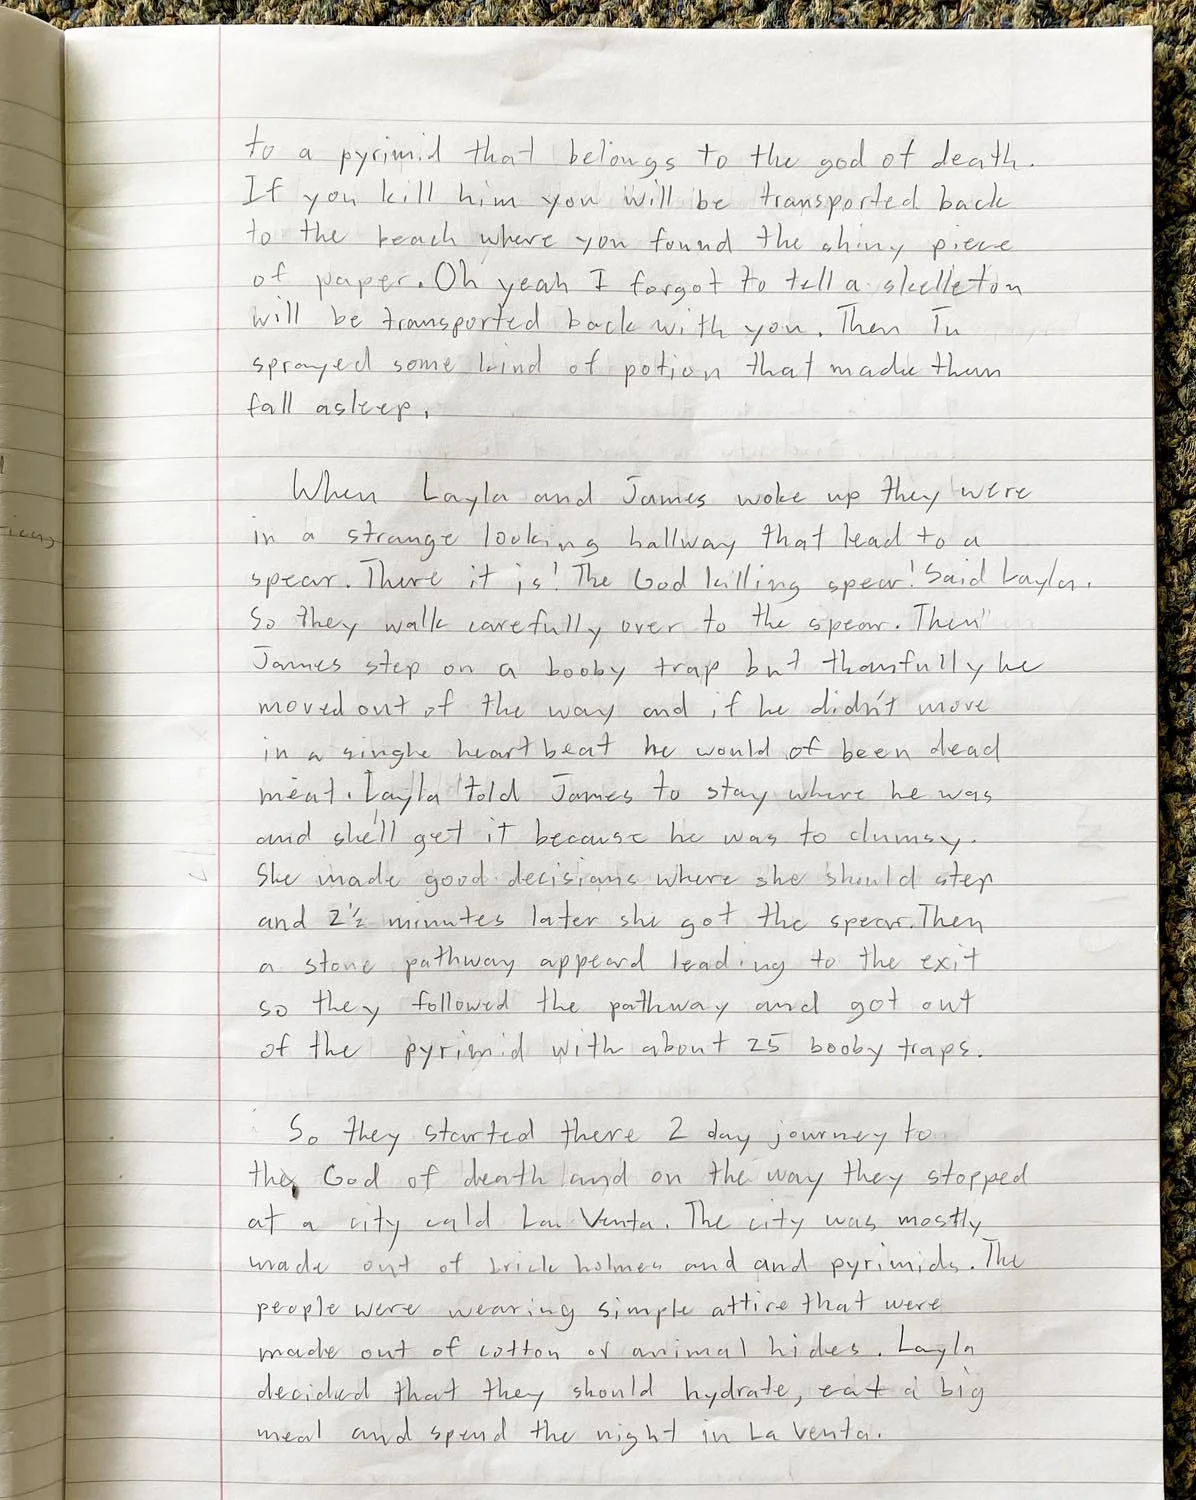 to a pyrimid that belongs to the god of death.
If you kill him you will be transported back
to the beach where you found the shiny piece
of paper. Oh yeah I forgot to tell a skelleton
will be transported back with you. Then Tu
sprayed some kind of potion that made them
fall asleep.
When Layla and James woke up they were
in a strange looking hallway that lead to a
spear. There it is! The God killing spear! Said Layla.
So they walk carefully over to the spear. Then
James step on a booby trap but thankfully he
moved out of the way and if he didn't move
in a single heart beat he would of been dead
meat. Layla told James to stay where he was
and she'll get it because he was to clumsy.
She made good decisians where she should step
and 2½ minutes later she got the spear. Then
a stone pathway appeard leading to the exit
so they followed the pathway and got out
of the pyrimid with about 25 booby traps.
So they started there 2 day journey to
the God of death and on the way they stopped
at a city cald La Venta. The city was mostly
made out of brick holmes and and pyrimids. The
people were wearing simple attire that were
made out of cotton or animal hides. Layla
decided that they should hydrate, eat a big
meal and spend the night in La Venta.